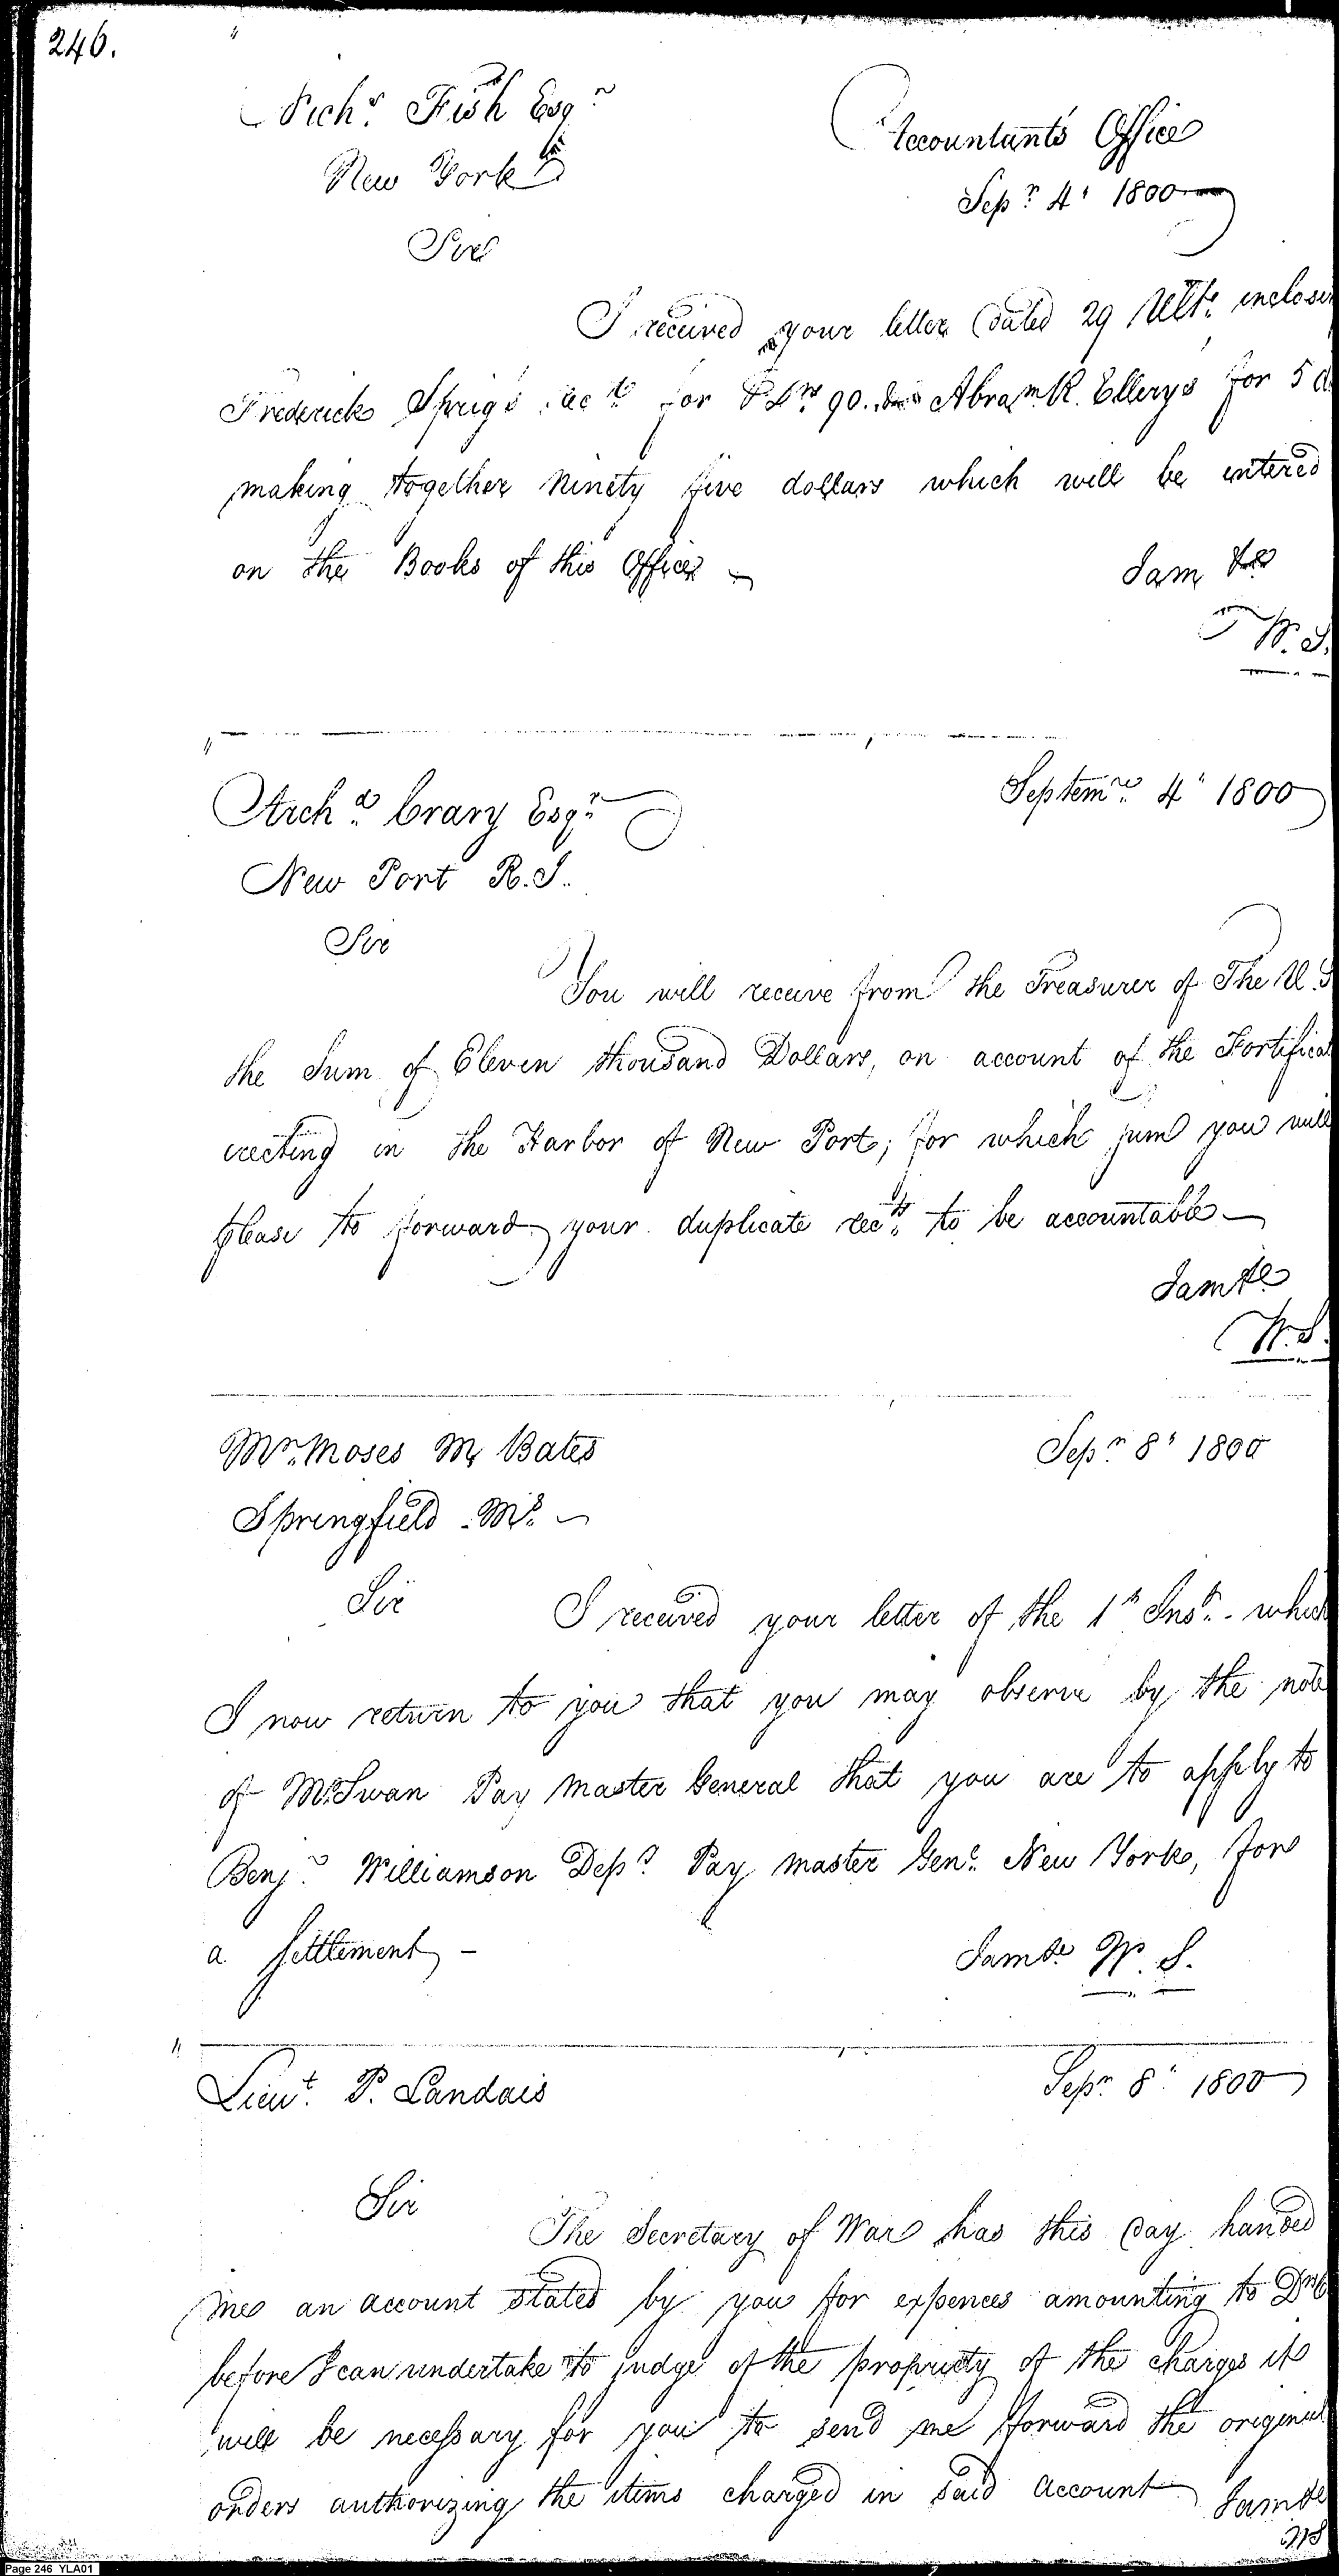 246.
Nichs. Fish Esqr
New York
Accountants Office
Sepr. 4" 1800
Sir
I received your letter dated 29 Ulto. inclosin
Frederick Sprigs recet. for 90. Abram R. Ellerys for 5 d
making together Ninety five dollars which will be entered
on the Books of this Office
I am &c
W. S.
Archd. Crary Esqr.
Septemr. 4" 1800
New Port R. I.
Sir
You will receive from the Treasurer of The U. S
the Sum of Eleven thousand Dollars, on account of the Fortificat
erecting in the Harbor of New Port; for which sum you will
please to forward your duplicate rects. to be accountable
I am &c
W. S.
Mr. Moses M. Bates
Sepr. 8" 1800
Springfield Ms.
Sir
I received your letter of the 1st Inst. which
I now return to you that you may observe by the note
of Mr. Swan Pay Master General that you are to apply to
Benjn. Williamson Depy. Pay Master Genl. New York, for
a settlement -
I am &c W. S.
Lieut. P. Landais
Sepr. 8" 1800
Sir
The Secretary of War has this day handed
me an account stated by you for expences amounting to Drs
before I can undertake to judge of the propriety of the charges it
will be necessary for you to send me forward the original
orders authorizing the items charged in said account
I am &c
WS
Page 246 YLA01